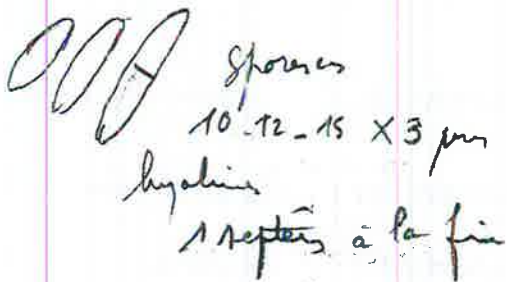 Spores
10-12-15 X 3 µm
hyalines
1 septées à la fin